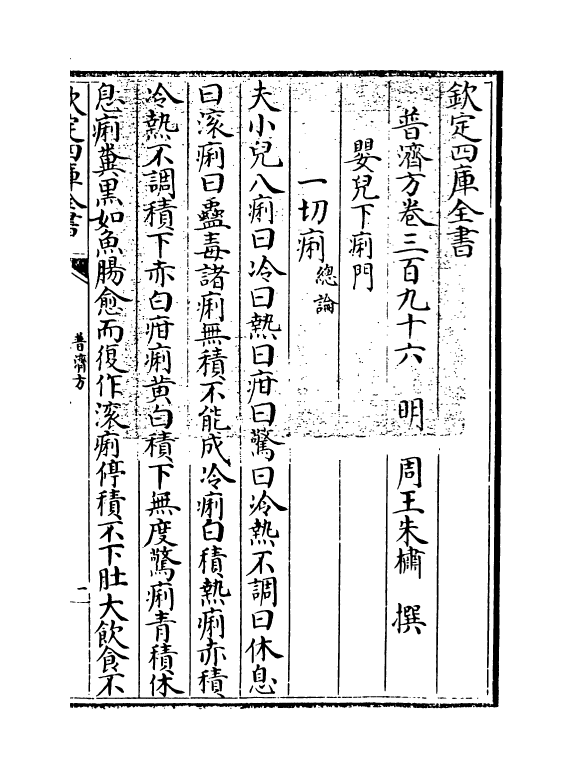 欽定四庫全書
普濟方卷三百九十六 明 周王朱橚 撰
嬰兒下痢門
一切痢總論
夫小兒八痢曰冷曰熱曰疳曰驚曰冷熱不調曰休息
曰滚痢曰蠱毒諸痢無積不能成冷痢白積熱痢赤積
冷熱不調積下赤白疳痢黄白積下無度驚痢青積休
息痢糞黑如魚腸愈而復作滚痢停積不下肚大飲食不
欽定四庫全書
普濟方